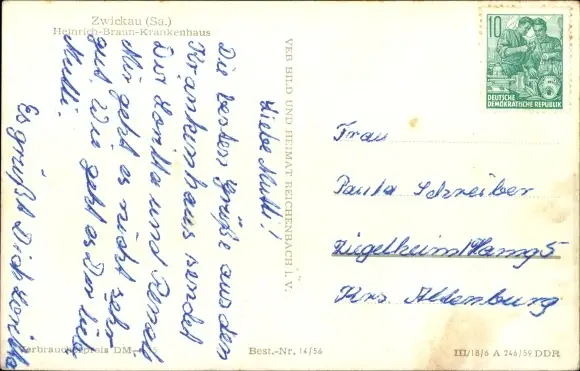 Zwickau (Sa.)
Heinrich-Braun-Krankenhaus
Liebe Mutti!
Die besten Grüße aus den
Krankenhaus sendet
Dir Loritta und Renate
Mir geht es nicht sehr
gut. Wie geht es Dir liebe
Mutti.
Es grüßt Dich Loritta
VEB BILD UND HEIMAT REICHENBACH i. V.
10
5
DEUTSCHE
DEMOKRATISCHE REPUBLIK
Frau
Paula Schreiber
Ziegelheim
Krs. Altenburg
Verbraucherpreis DM
Best.-Nr. 14/56
III/18/6 A 246/59 DDR